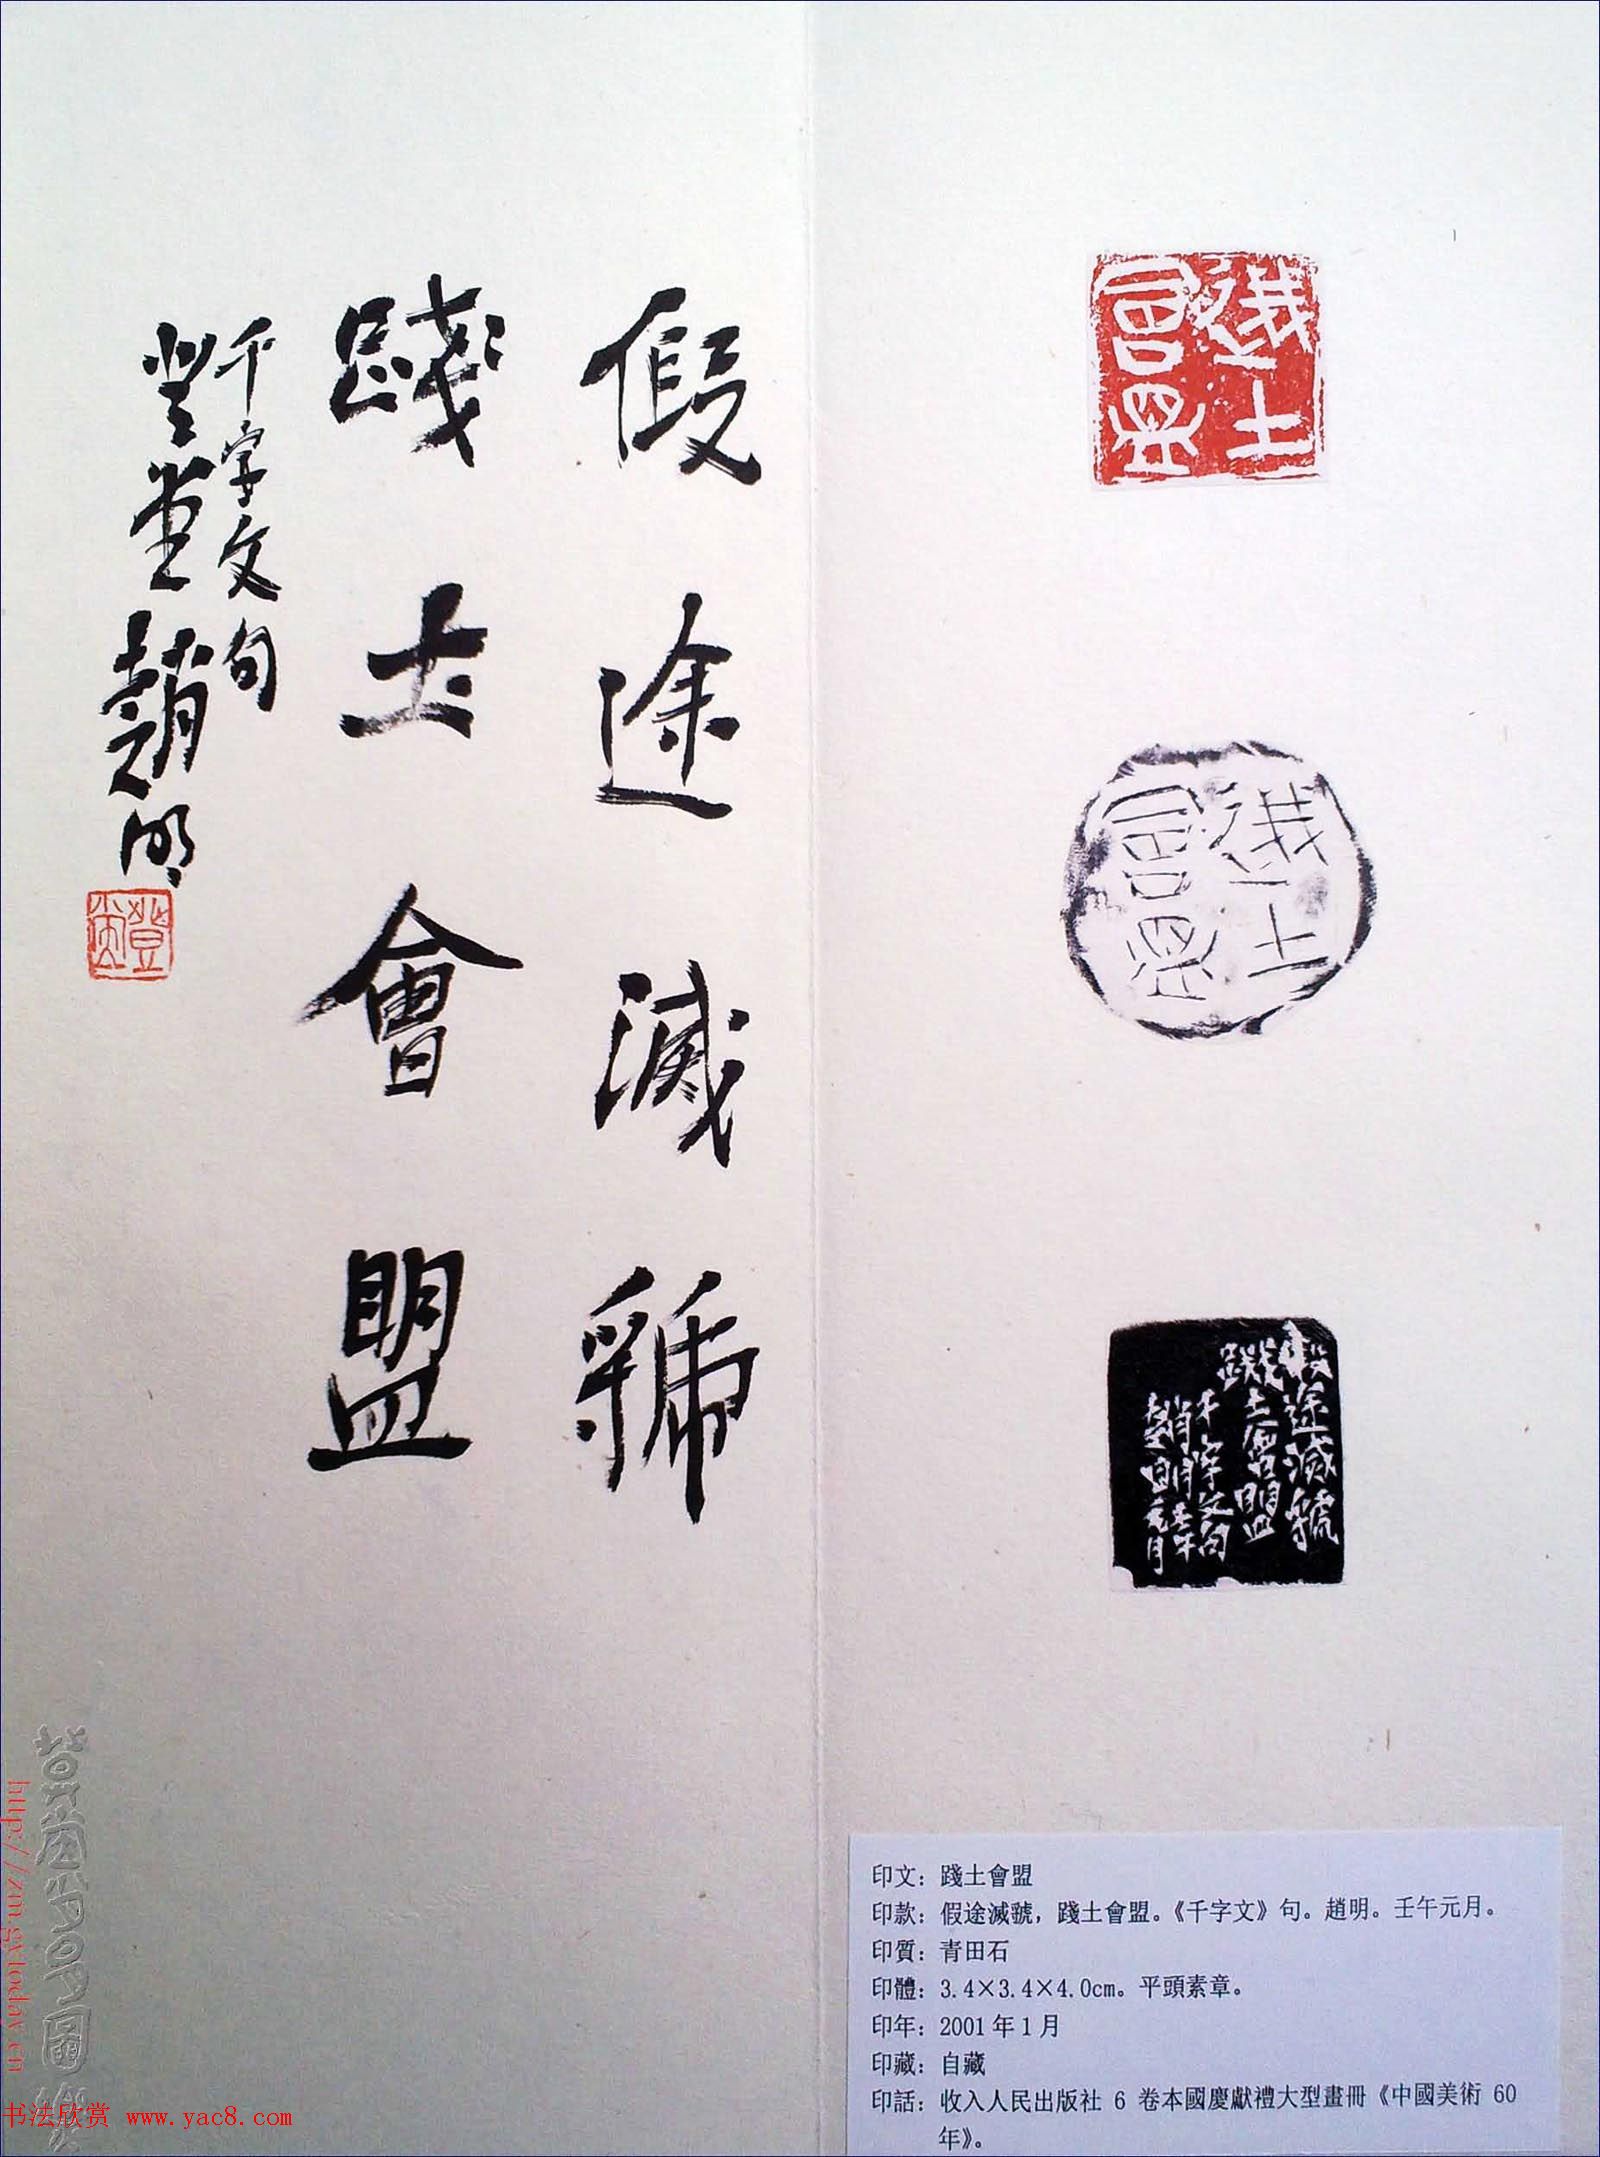 踐土
會盟
踐土
會盟
假途滅虢
踐土會盟
千字文句
趙明壬午
元月
印文：踐土會盟
印款：假途滅虢，踐土會盟。《千字文》句。趙明。壬午元月。
印質：青田石
印體：3.4×3.4×4.0cm。平頭素章。
印年：2001年1月
印藏：自藏
印話：收入人民出版社 6 卷本國慶獻禮大型畫冊《中國美術 60
年》。
假途滅虢
踐土會盟
千字文句
豐堂趙明
http://zm.gxtoday.cn
书法欣赏 www.yac8.com